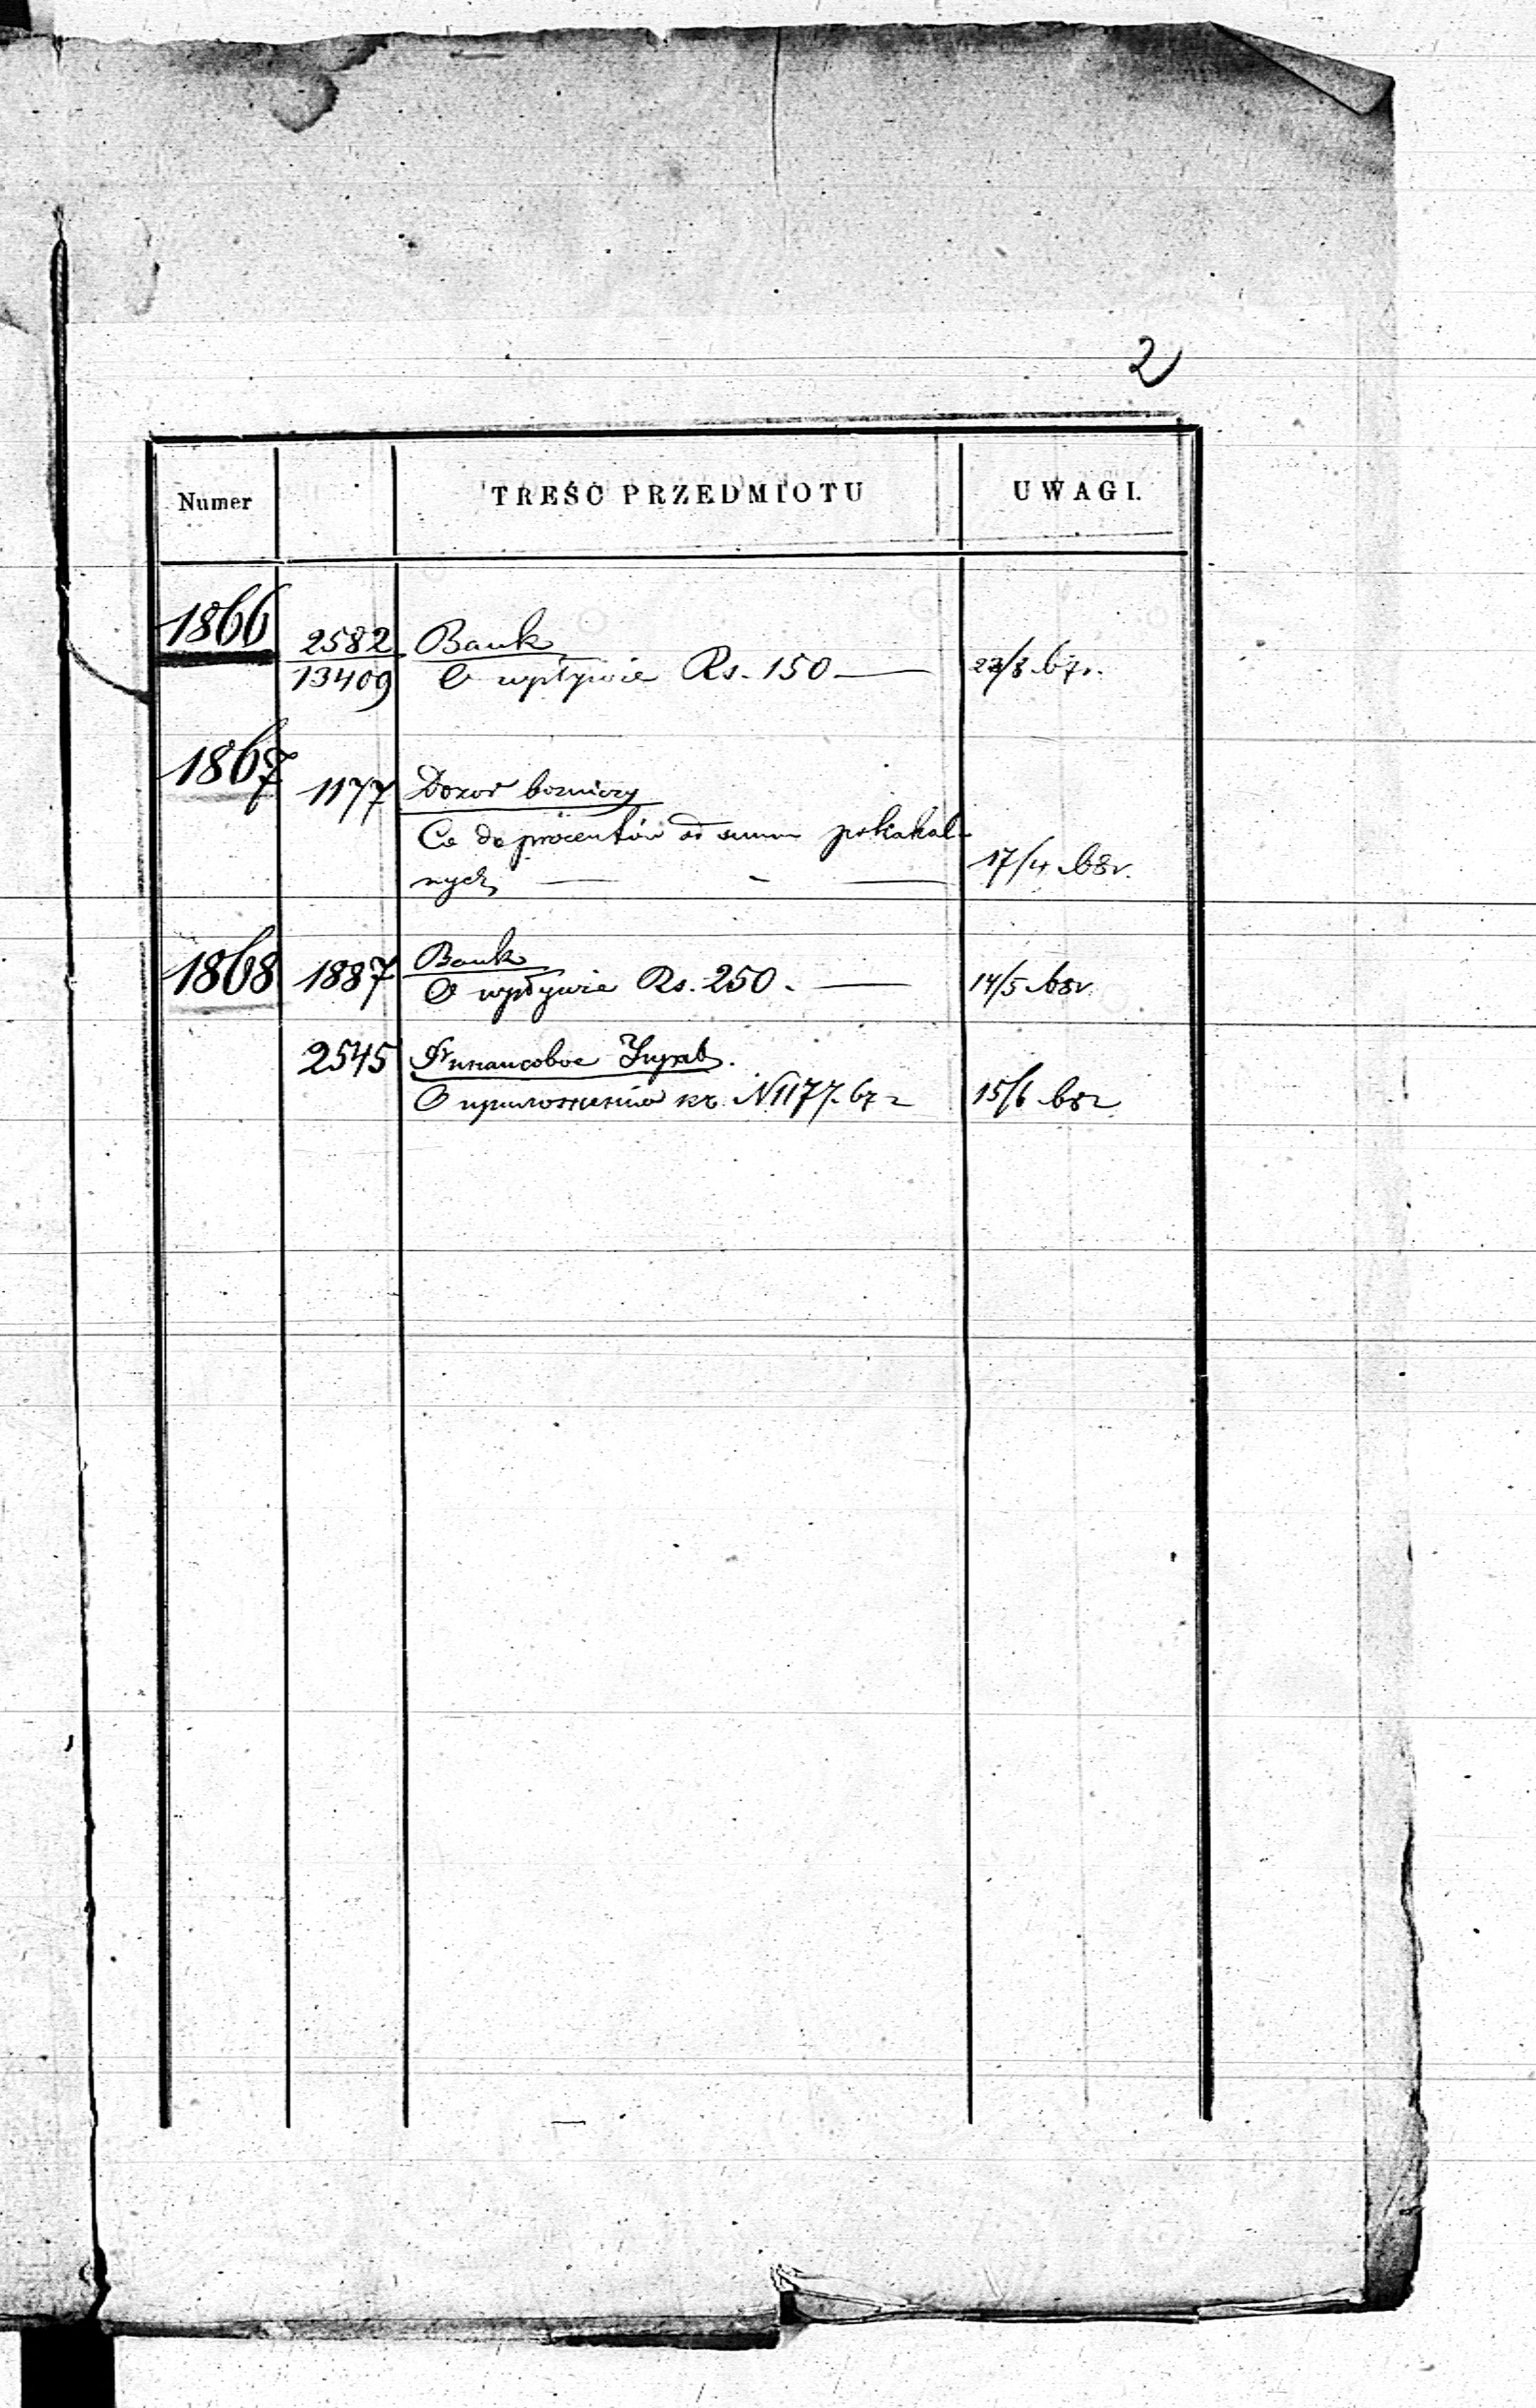 2
Numer TREŚĆ PRZEDMIOTU UWAGI.
1866 2582 Bank
13409 O wpływie Rs. 150 — 22/8 67 r.
1867 1177 Dozór bożniczy
Co do procentów od summ pokahal-
nych — - — 17/4 68 r.
1868 1887 Bank
O wpływie Rs. 250. — 14/5 68 r.
2545 Финансовое Управ.
О приложении къ N 1177. 67 г 15/6 68 г